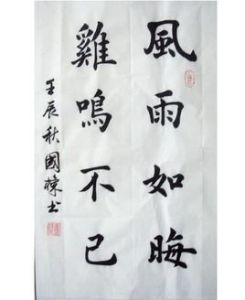 風雨如晦
雞鳴不已
壬辰秋國棟书